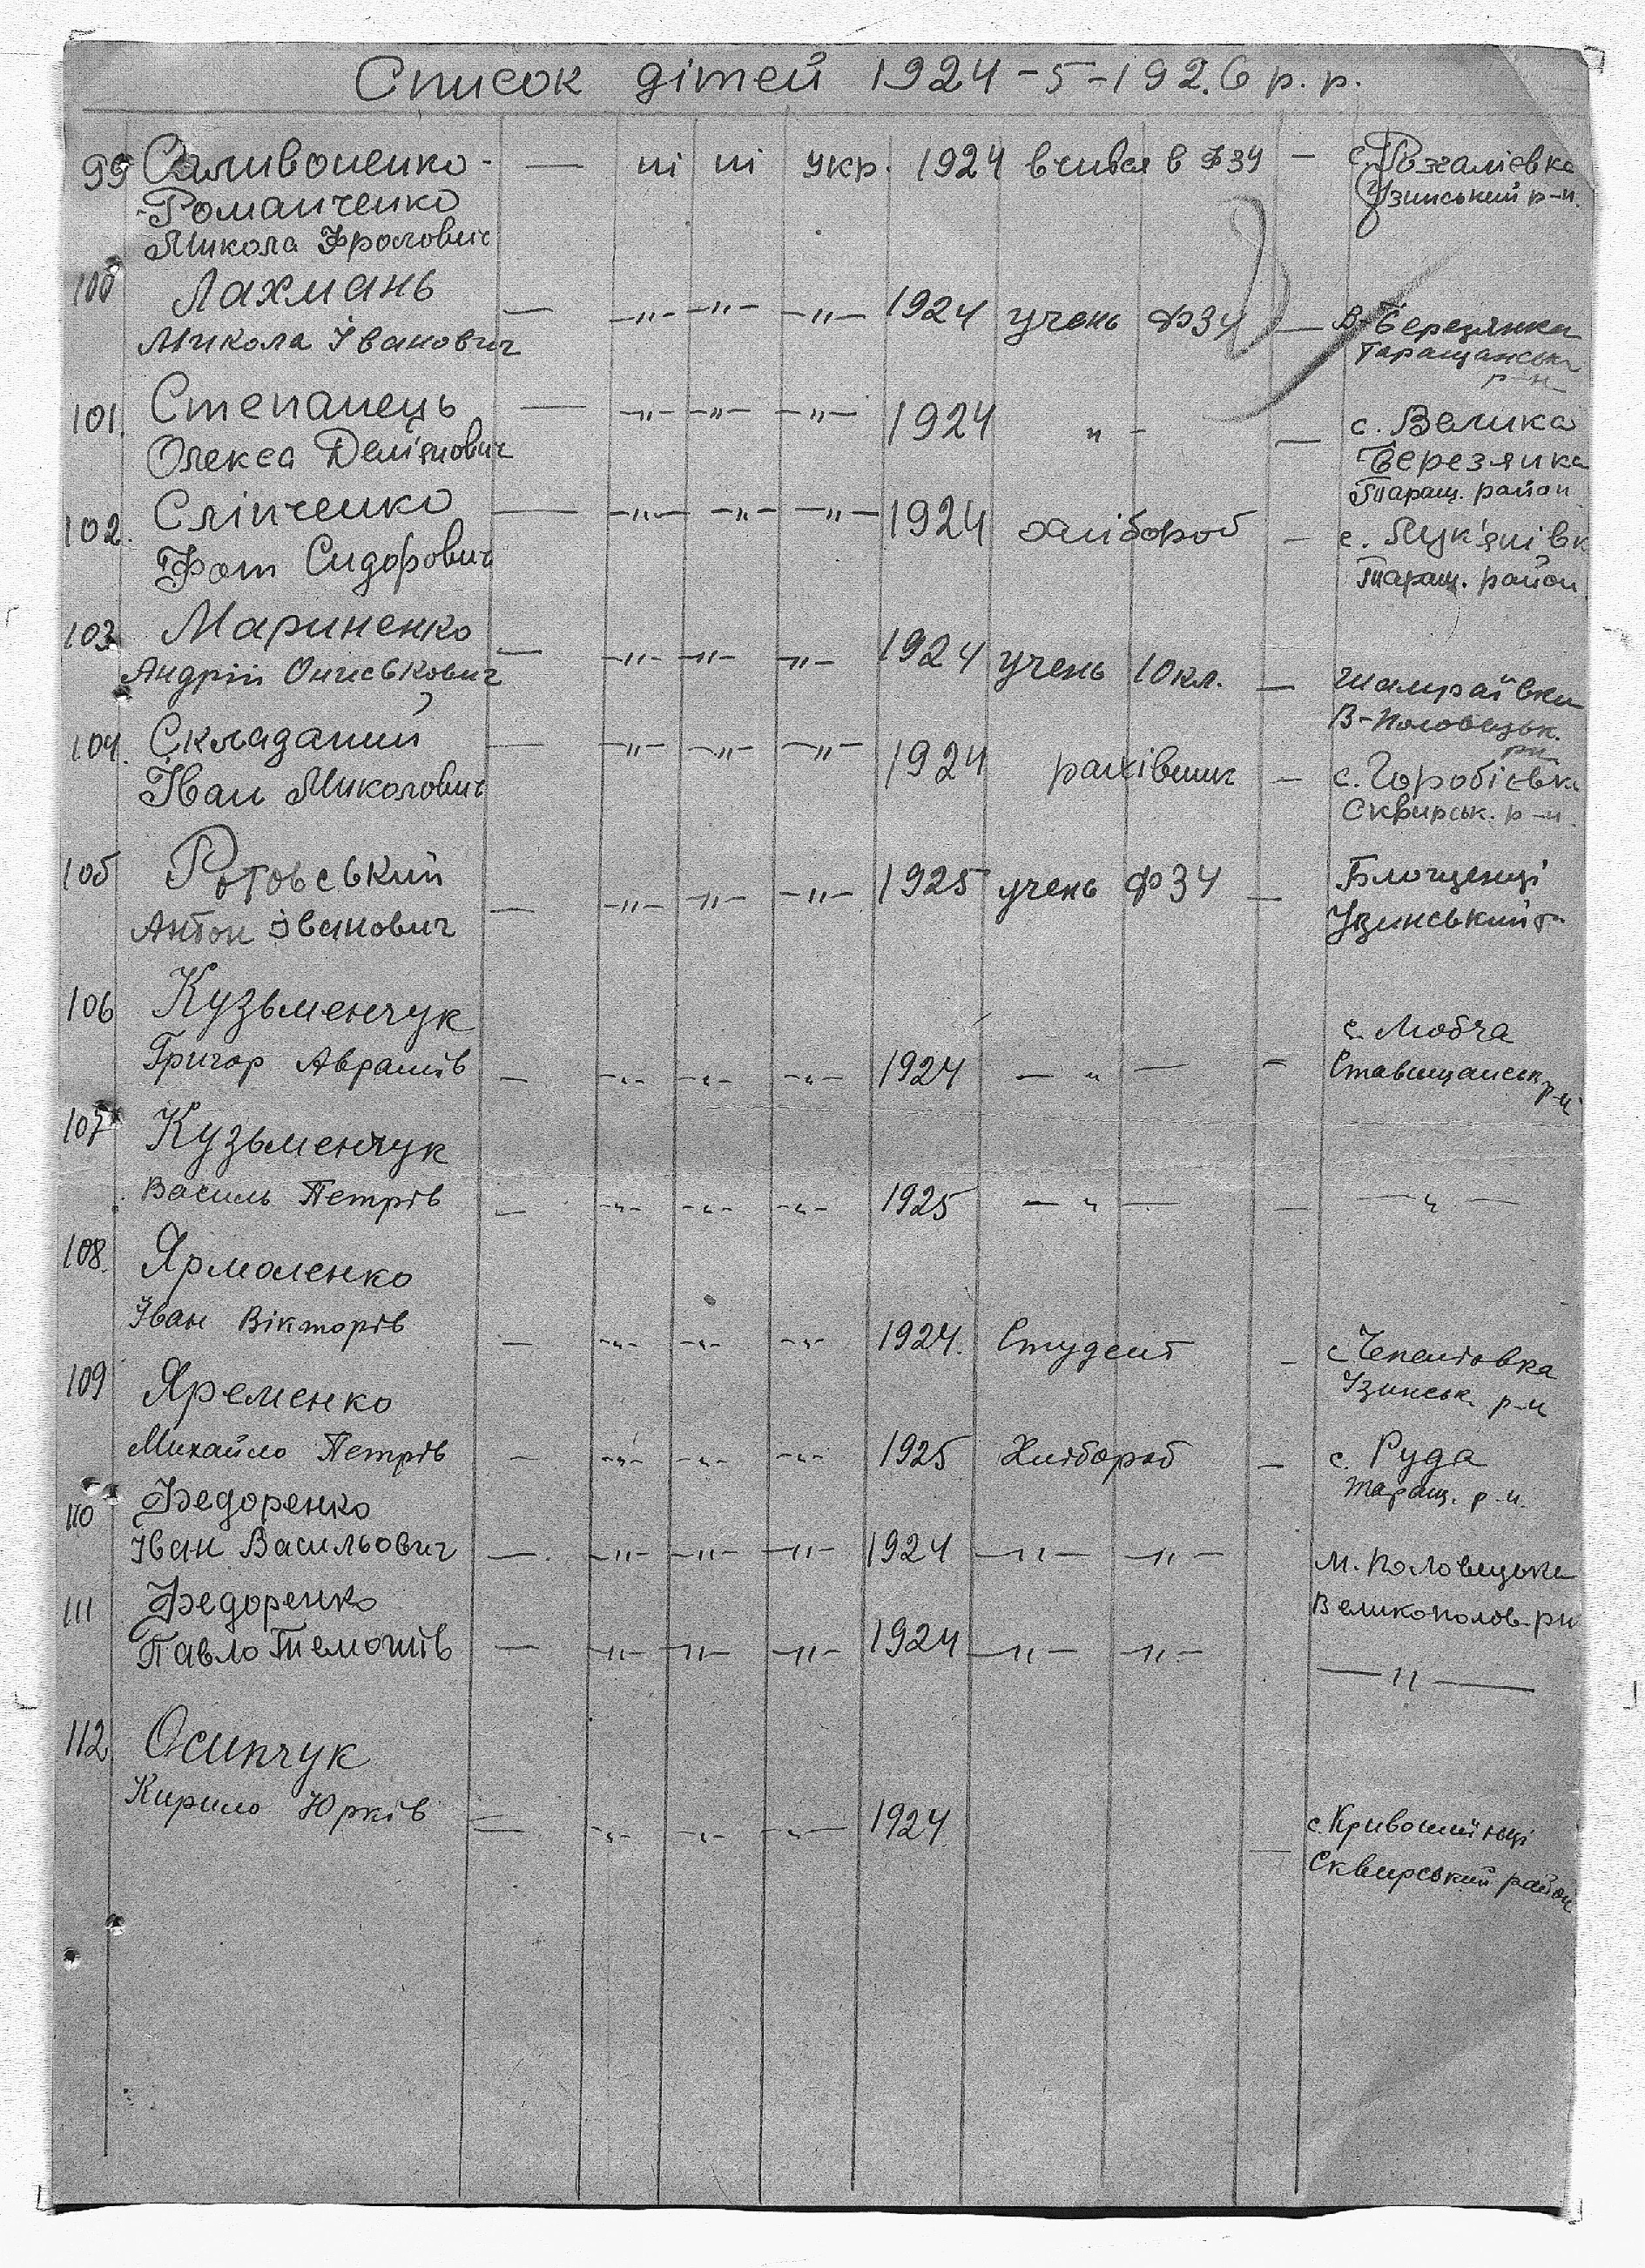 Список дітей 1924-5-1926 р.р.
99 Саливоненко- — ні ні укр. 1924 вчився в ФЗУ — с. Рожалієвка
-Романченко Узинський р-н.
Микола Фролович
100 Лахмань
Микола Іванович — -"- -"- -"- 1924 учень ФЗУ — В-Березянка
Таращанськ
р-н
101. Степанець — -"- -"- -"- 1924 " - — с. Велика
Олекса Дем'янович Березянка
Таращ. район
102. Сліпченко — -"- -"- -"- 1924 хлібороб — с. Лук'янівк
Фот Сидорович Таращ. район
103 Мариненко
Андрій Ониськович — -"- -"- -"- 1924 учень 10 кл. — Шамраївка
В-Половецьк.
рн
104. Складаний — -"- -"- -"- 1924 рахівник — с. Горобієвка
Іван Миколович Сквирськ. р-н
105 Ротовський — -"- -"- -"- 1925 учень ФЗУ — Блощенці
Антон Іванович Узинський р-
106 Кузьменчук с. Любча
Григор Аврамів — -"- -"- -"- 1924 — " — — Ставищанськ р-н
107 Кузьменчук
Василь Петрів — -"- -"- -"- 1925 — " — — — " —
108. Ярмоленко
Іван Вікторів — -"- -"- -"- 1924. Студент — с.
Узинськ. р-н
109 Яременко
Михайло Петрів — -"- -"- -"- 1925 Хлібороб — с. Руда
Таращ. р-н.
110 Федоренко
Іван Васильович — -"- -"- -"- 1924 -"- -"- М. Половецьке
111 Федоренко Великополов-рн
Павло Темошів — -"- -"- -"- 1924 -"- -"- — " —
112 Осипчук
Кирило Юрків — -"- -"- -"- 1924 — с. Кривошиїнці
Сквирський район